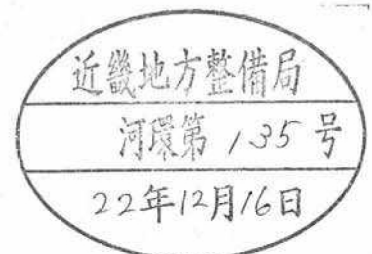 近畿地方整備局
河環第135号
22年12月16日